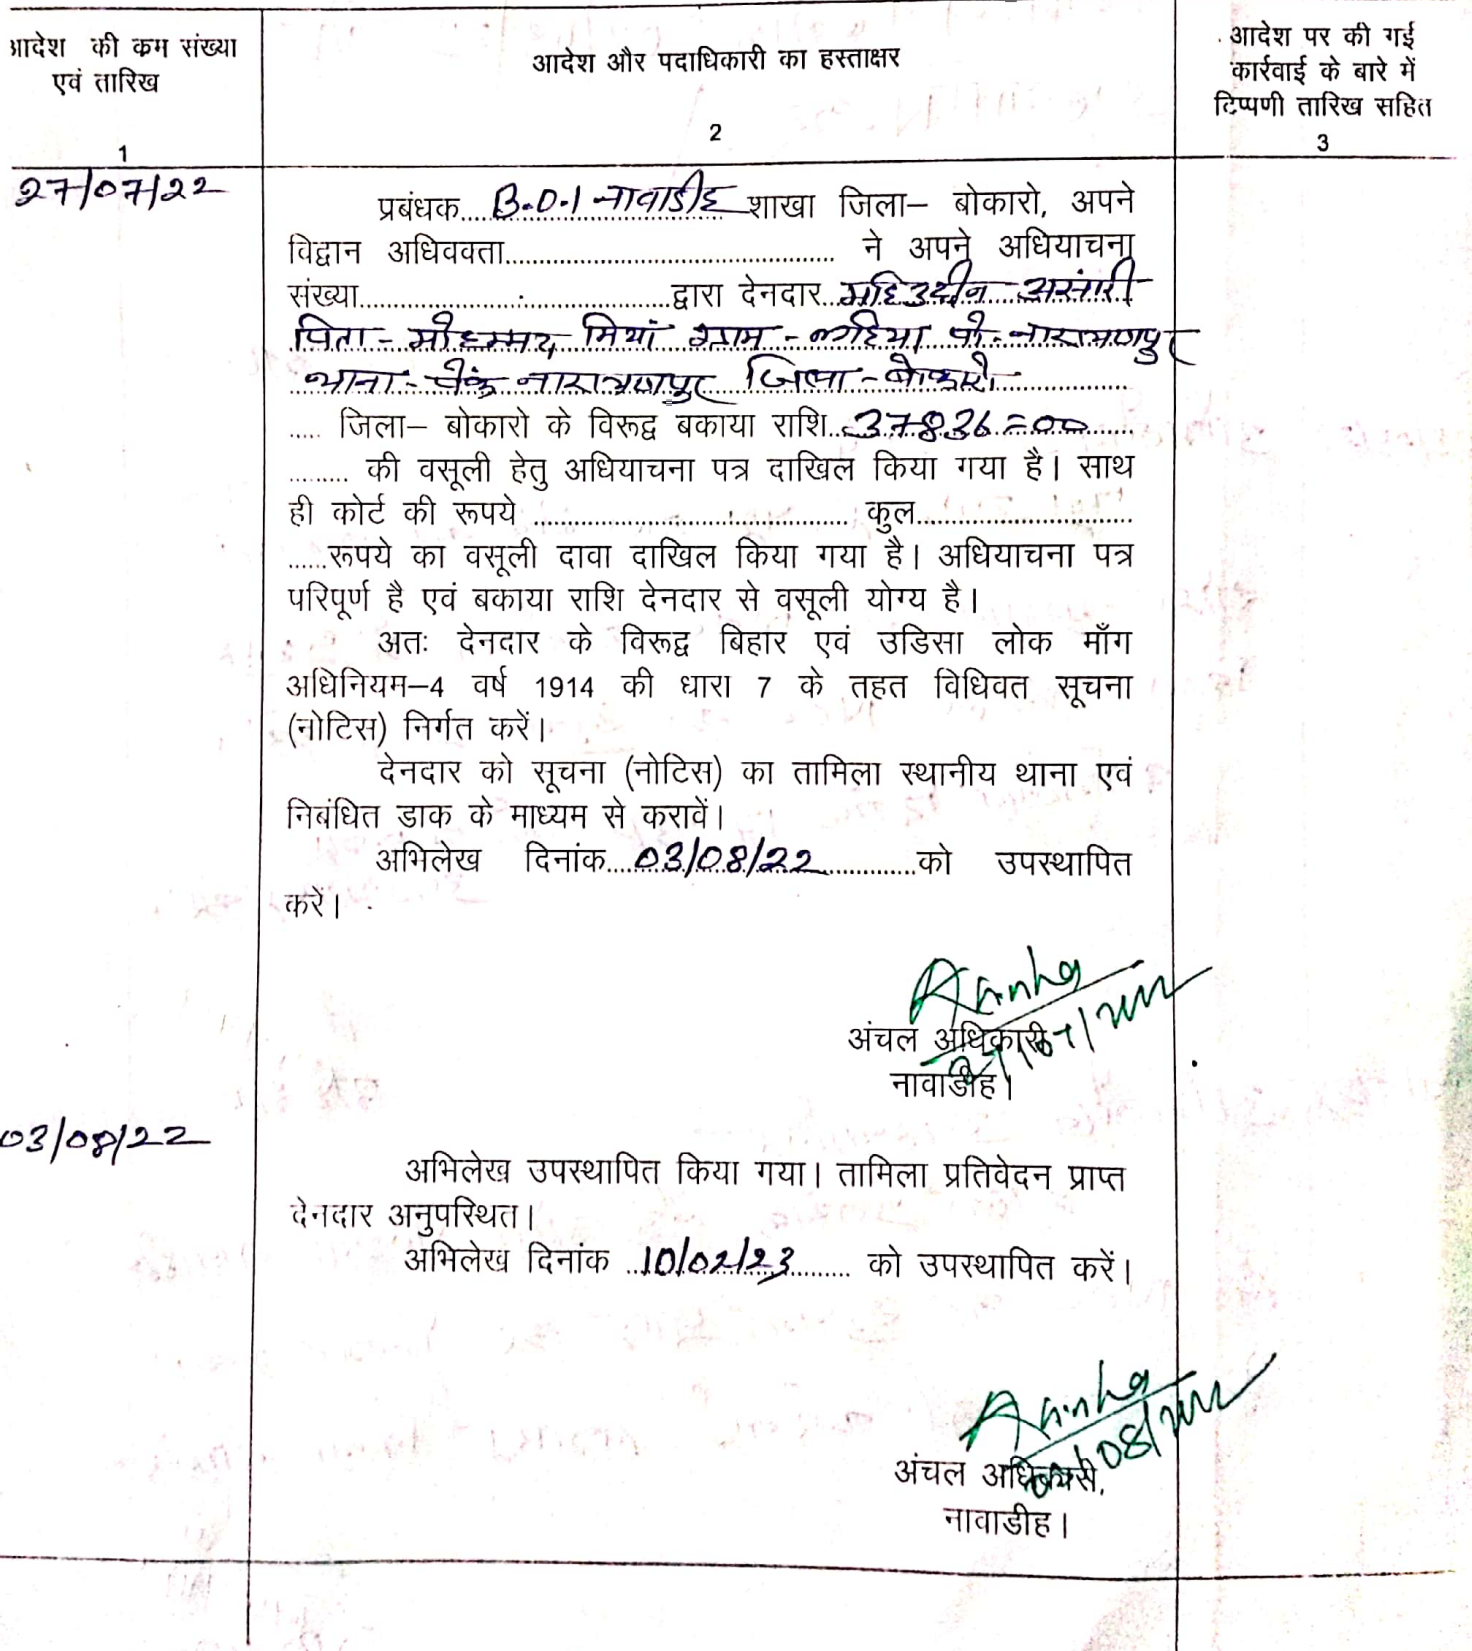 आदेश की क्रम संख्या
एवं तारिख
1
आदेश और पदाधिकारी का हस्ताक्षर
2
आदेश पर की गई
कार्रवाई के बारे में
टिप्पणी तारिख सहित
3
27/07/22
प्रबंधक.... B.O.I नावाडीह शाखा जिला– बोकारो, अपने
विद्वान अधिववता.................... ने अपने अधियाचना
संख्या....................द्वारा देनदार महिउद्दीन असंारी
पिता - मोहम्मद मियां ग्राम - पो-नारायणपुर
थाना - पेंक नारायणपुर जिला - बोकारो
..... जिला– बोकारो के विरूद्व बकाया राशि 37836=00
......... की वसूली हेतु अधियाचना पत्र दाखिल किया गया है। साथ
ही कोर्ट की रूपये .................... कुल....................
......रूपये का वसूली दावा दाखिल किया गया है। अधियाचना पत्र
परिपूर्ण है एवं बकाया राशि देनदार से वसूली योग्य है।
अतः देनदार के विरूद्व बिहार एवं उडिसा लोक माँग
अधिनियम–4 वर्ष 1914 की धारा 7 के तहत विधिवत सूचना
(नोटिस) निर्गत करें।
देनदार को सूचना (नोटिस) का तामिला स्थानीय थाना एवं
निबंधित डाक के माध्यम से करावें।
अभिलेख दिनांक....03/08/22..............को उपस्थापित
करें।
अंचल अधिकारी
नावाडीह।
03/08/22
अभिलेख उपस्थापित किया गया। तामिला प्रतिवेदन प्राप्त
देनदार अनुपस्थित।
अभिलेख दिनांक ..10/02/23......... को उपस्थापित करें।
अंचल अधिकारी,
नावाडीह।